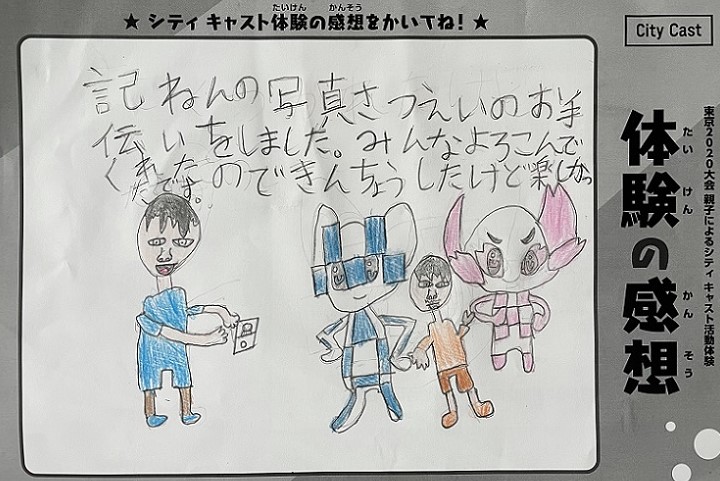 ★ シティ キャスト体験の感想をかいてね! ★
たいけん かんそう
City Cast
記ねんの写真さつえいのお手
伝いをしました。みんなよろこんで
くれたのできんちょうしたけど楽しかっ
たです。
体験の感想
たい けん かん そう
東京2020大会 親子によるシティ キャスト活動体験